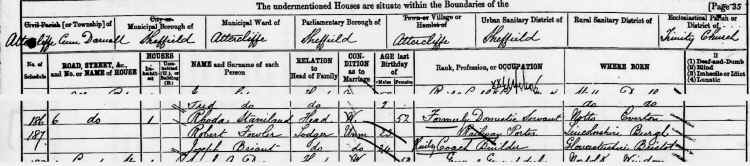 The undermentioned Houses are situate within the Boundaries of the
[Page 35
Civil Parish [or Township] of
City or Municipal Borough of
Municipal Ward of
Parliamentary Borough of
Town or Village or Hamlet of
Urban Sanitary District of
Rural Sanitary District of
Ecclesiastical Parish or District of
Attercliffe cum Darnall Sheffield Attercliffe Sheffield Attercliffe Sheffield Trinity Church
No. of Schedule
ROAD, STREET, &c., and No. or NAME of HOUSE
HOUSES
Inhabited
Uninhabited (U.), or Building (B.)
NAME and Surname of each Person
RELATION to Head of Family
CONDITION as to Marriage
AGE last Birthday of
Males
Females
Rank, Profession, or OCCUPATION
WHERE BORN
If
(1) Deaf-and-Dumb
(2) Blind
(3) Imbecile or Idiot
(4) Lunatic
Fred do do 2 do do
186 6 do 1 Rhoda Staniland Head W. 52 Formerly Domestic Servant Notts Everton
187 Robert Fowler Lodger Unm 23 Railway Porter Lincolnshire Burgh
Joseph Briant do do 24 Coach Builder Gloucestershire Bristol